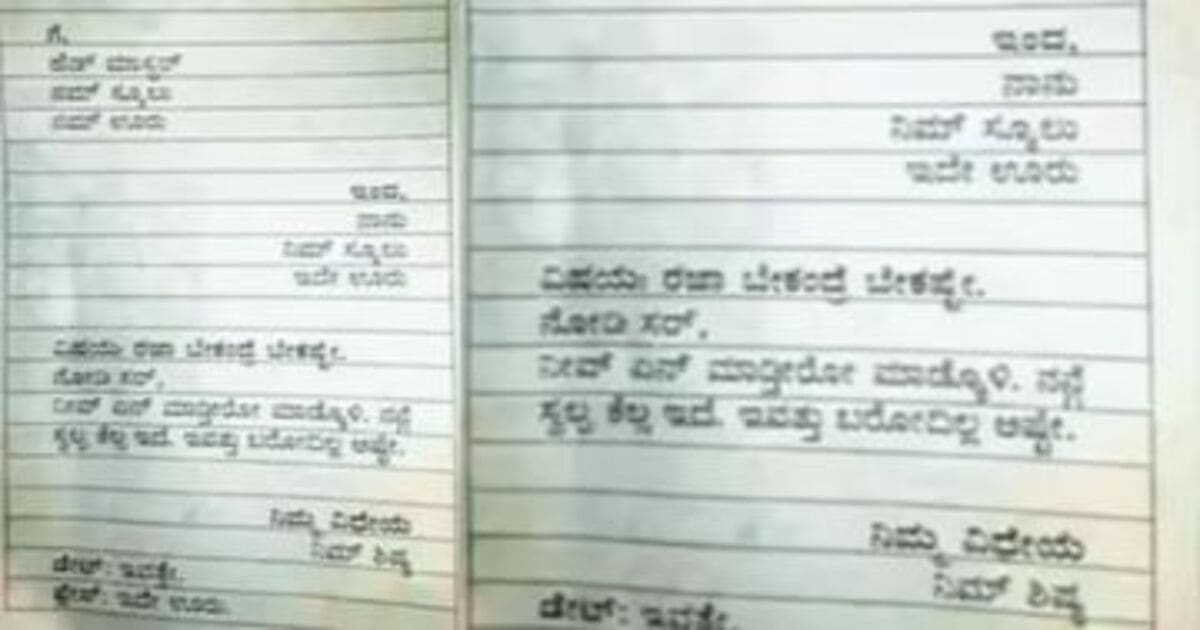 ಗೆ,
ಹೆಡ್ ಮಾಸ್ಟರ್
ನಮ್ ಸ್ಕೂಲು
ನಮ್ ಊರು
ಇಂದ,
ನಾನು
ನಿಮ್ ಸ್ಕೂಲು
ಇದೇ ಊರು
ವಿಷಯ: ರಜಾ ಬೇಕಂದ್ರೆ ಬೇಕಷ್ಟೇ.
ನೋಡಿ ಸರ್,
ನೀವ್ ಏನ್ ಮಾಡ್ತೀರೋ ಮಾಡ್ಕೊಳಿ. ನನ್ಗೆ
ಸ್ವಲ್ಪ ಕೆಲ್ಸ ಇದೆ. ಇವತ್ತು ಬರೋದಿಲ್ಲ ಅಷ್ಟೇ.
ನಿಮ್ಮ ವಿಧೇಯ
ನಿಮ್ ಶಿಷ್ಯ
ಡೇಟ್: ಇವತ್ತೇ.
ಪ್ಲೇಸ್: ಇದೇ ಊರು.
ಇಂದ,
ನಾನು
ನಿಮ್ ಸ್ಕೂಲು
ಇದೇ ಊರು
ವಿಷಯ: ರಜಾ ಬೇಕಂದ್ರೆ ಬೇಕಷ್ಟೇ.
ನೋಡಿ ಸರ್,
ನೀವ್ ಏನ್ ಮಾಡ್ತೀರೋ ಮಾಡ್ಕೊಳಿ. ನನ್ಗೆ
ಸ್ವಲ್ಪ ಕೆಲ್ಸ ಇದೆ. ಇವತ್ತು ಬರೋದಿಲ್ಲ ಅಷ್ಟೇ.
ನಿಮ್ಮ ವಿಧೇಯ
ನಿಮ್ ಶಿಷ್ಯ
ಡೇಟ್: ಇವತ್ತೇ.